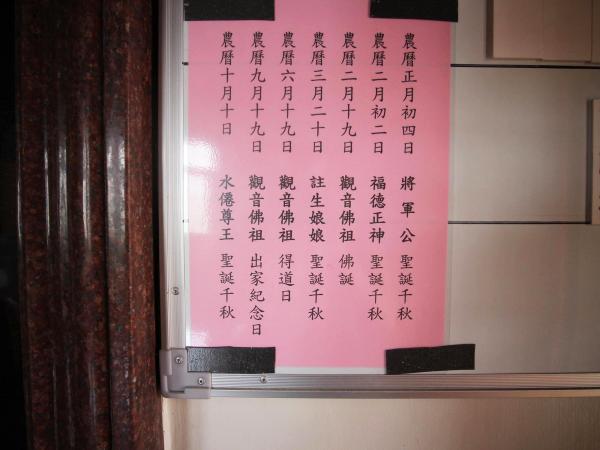 農曆正月初四日 將軍公 聖誕千秋
農曆二月初二日 福德正神 聖誕千秋
農曆二月十九日 觀音佛祖 佛誕
農曆三月二十日 註生娘娘 聖誕千秋
農曆六月十九日 觀音佛祖 得道日
農曆九月十九日 觀音佛祖 出家紀念日
農曆十月十日 水僊尊王 聖誕千秋